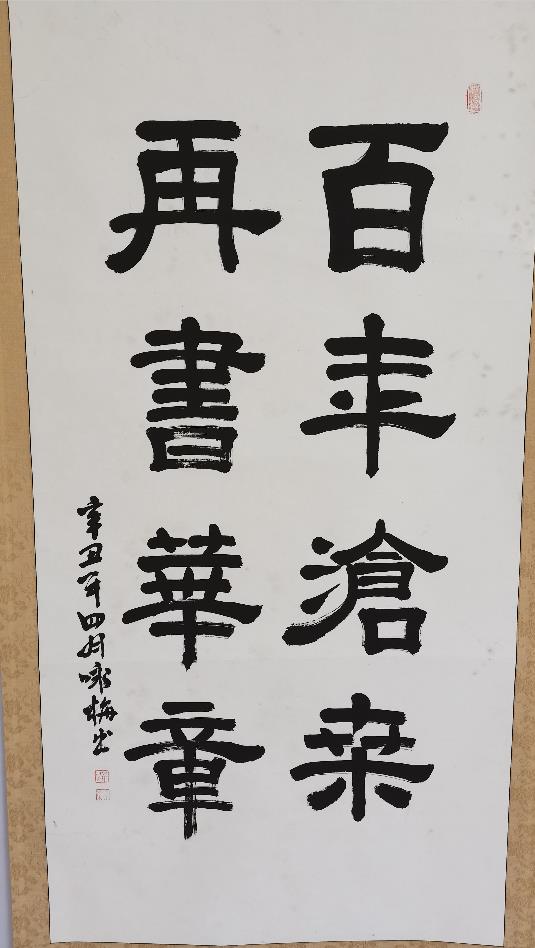 百年滄桒
再書華章
辛丑年四月咏梅书